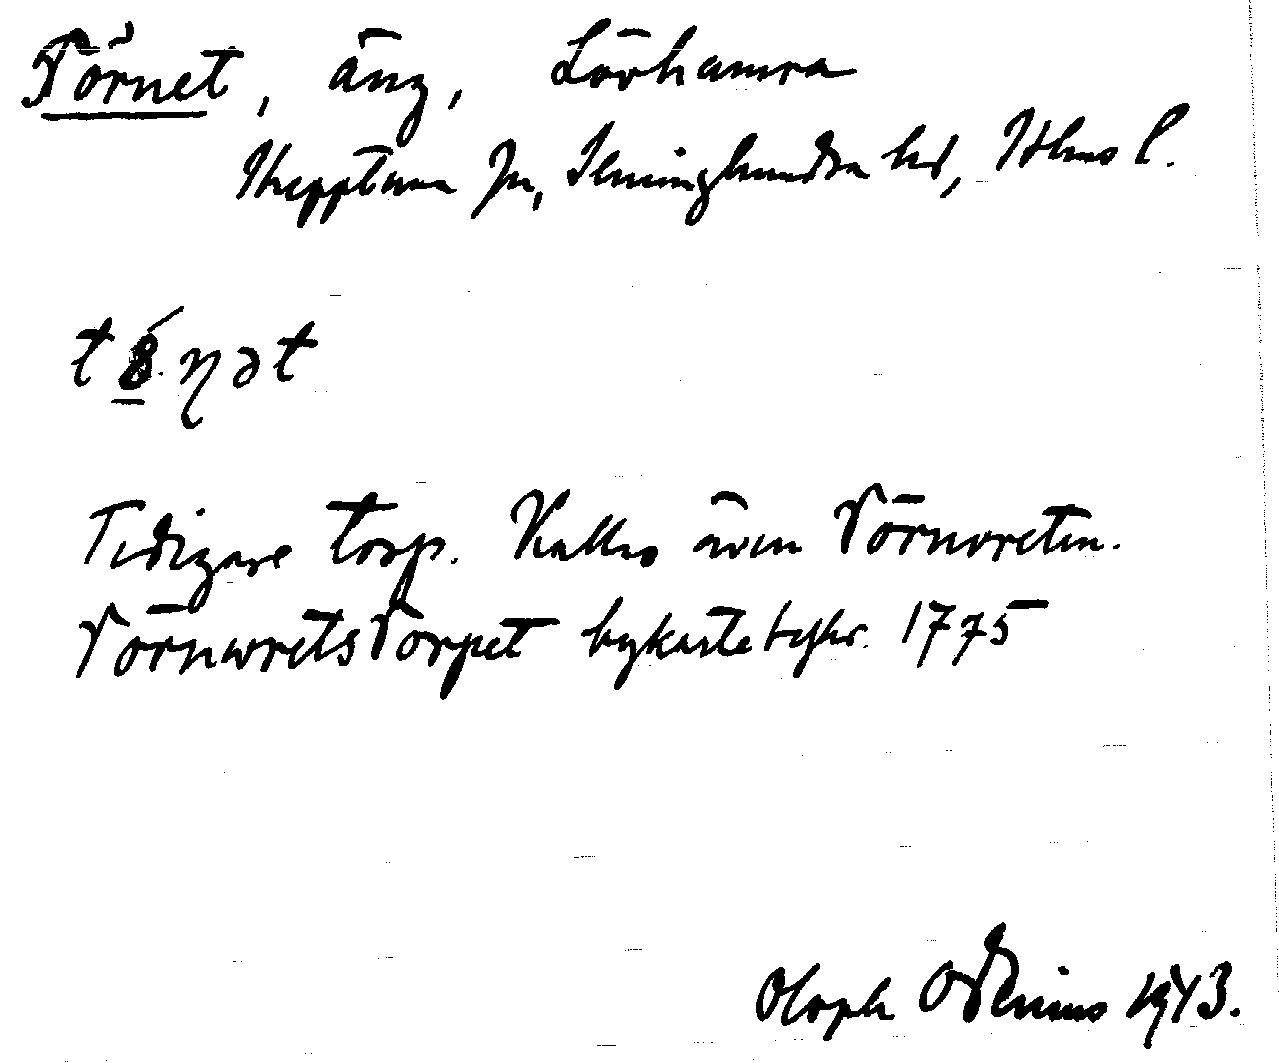 Törnet, äng, Lövhamra
Skepptuna sn, Seminghundra hd, Sthms l.
Tidigare torp. Kallas även Törnvreten.
Törnwretstorpet bykartebeskr. 1775
Oloph Odenius 1943.